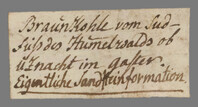 Braunkohle vom Süd-
fuß des Humelwalds ob
Uznacht im gaster.
Eigentliche Sandsteinformation